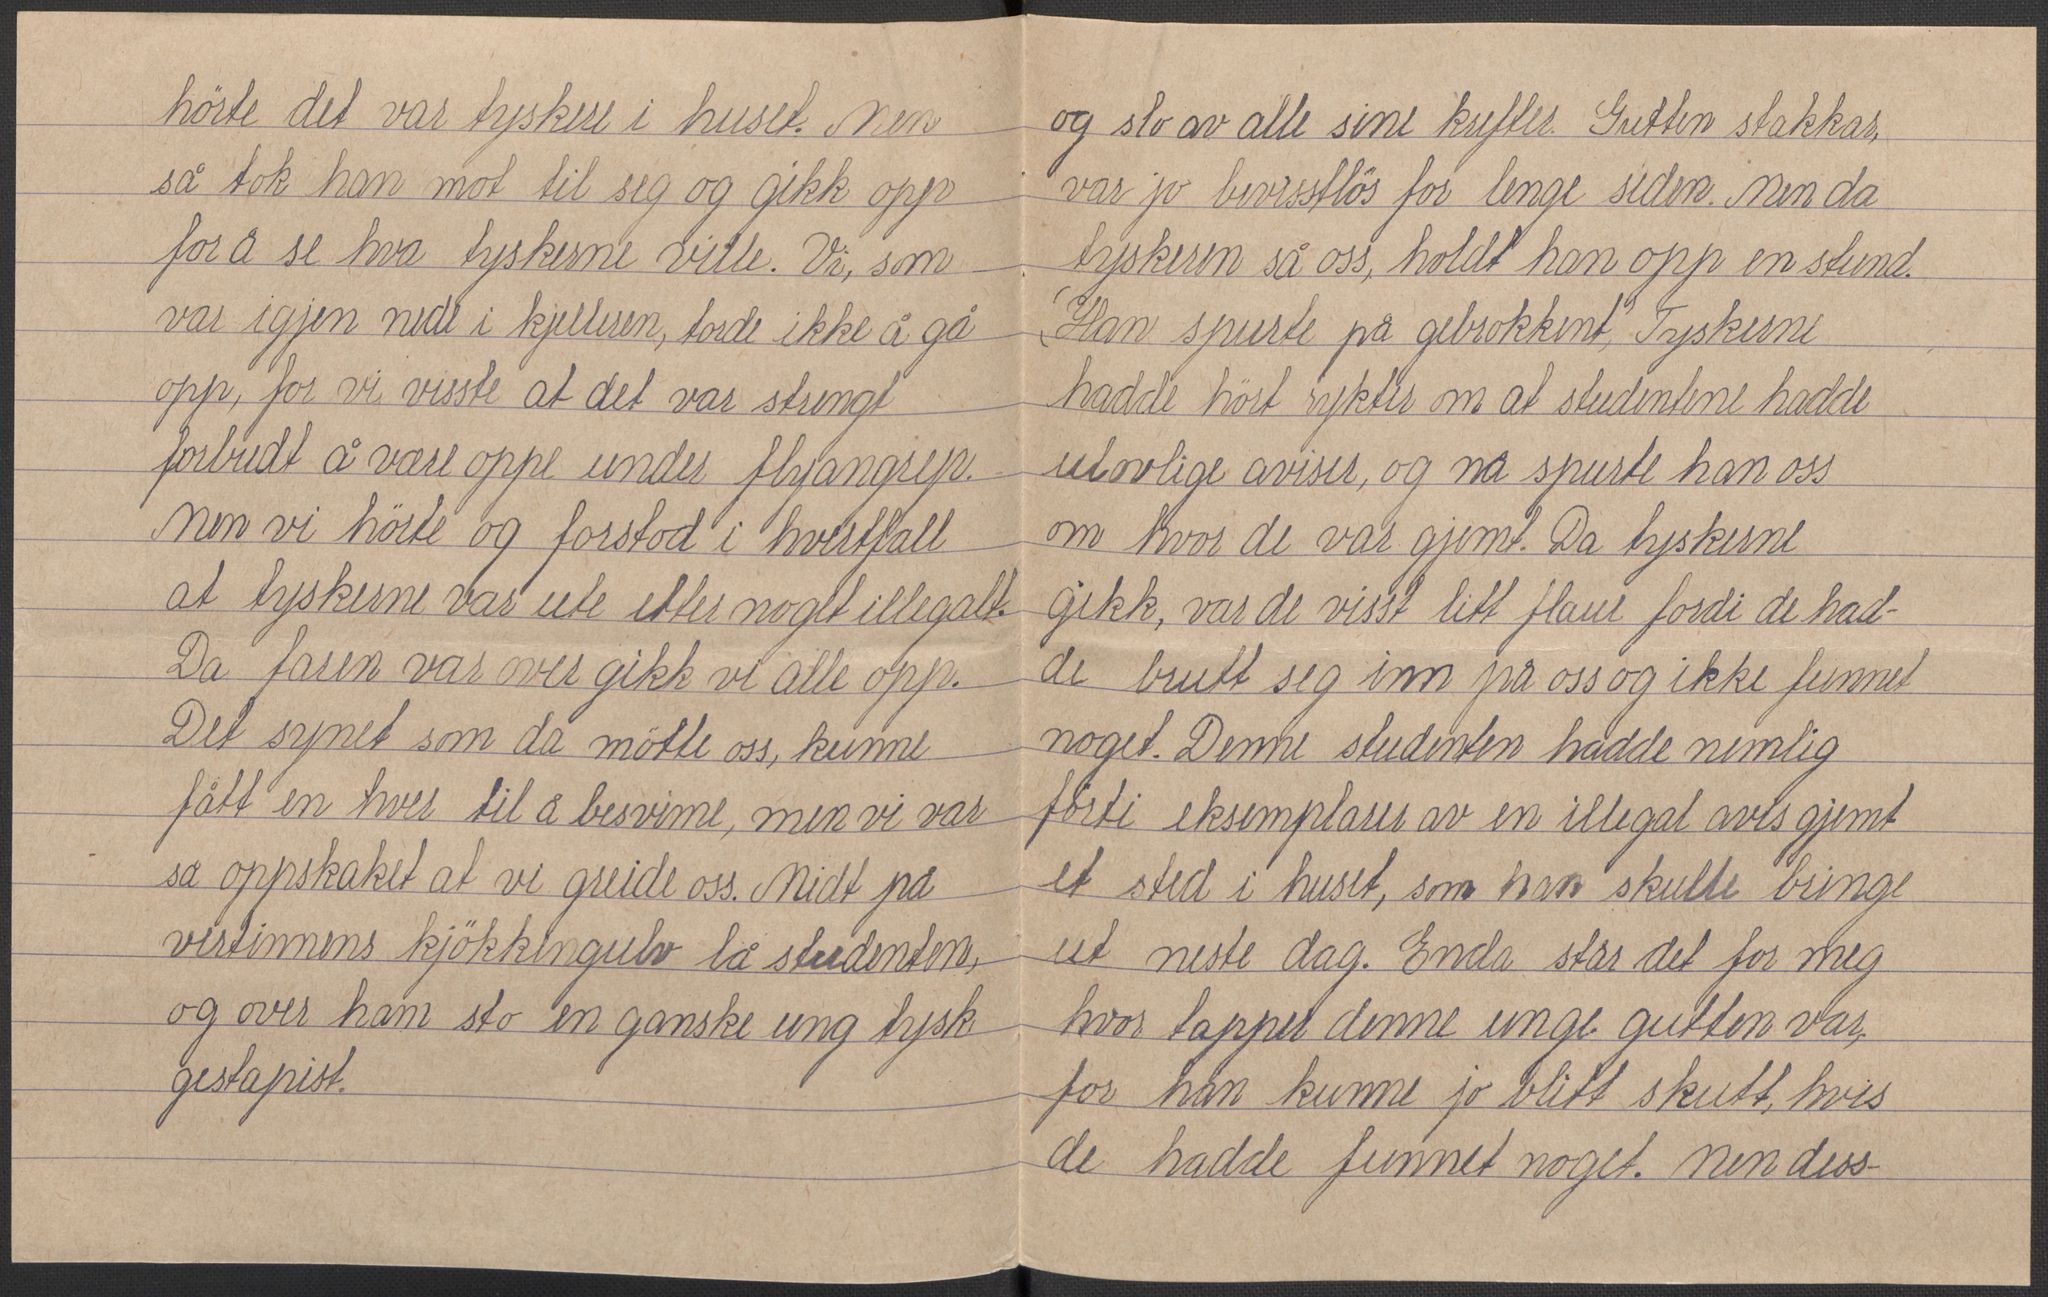 hörte det var tyskere i huset. Men
så tok han mot til seg og gikk opp
for å se hva tyskerne ville. Vi, som
var igjen nede i kjelleren, torde ikke å gå
opp, for vi visste at det var strengt
forbudt å være oppe under flyangrep.
Men vi hörte og forstod i hvertfall
at tyskerne var ute etter noget illegalt.
Da faren var over gikk vi alle opp.
Det synet som da mötte oss, kunne
fått en hver til å besvime, men vi var
så oppskaket at vi greide oss. Midt på
vertinnens kjökkengulv lå studenten,
og over ham sto en ganske ung tysk
gestapist.
og slo av alle sine krefter. Gutten stakkar,
var jo bevisstlös for lenge siden. Men da
tyskeren så oss, holdt han opp en stund.
(Han spurte på gebrokkent,) Tyskerne
hadde hört rykter om at studentene hadde
ulovlige aviser, og nå spurte han oss
om hvor de var gjemt. Da tyskerne
gikk, var de visst litt flaue fordi de had-
de brutt seg inn på oss og ikke funnet
noget. Denne studenten hadde nemlig
förti eksemplarer av en illegal avis gjemt
et sted i huset, som han skulle bringe
ut neste dag. Enda står det for meg
hvor tapper denne unge gutten var,
for han kunne jo blitt skutt, hvis
de hadde funnet noget. Men dess-